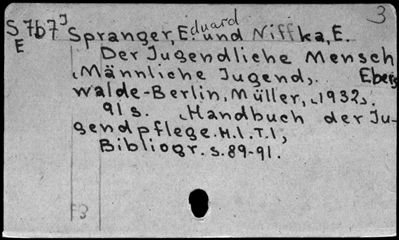 3
S7b7J Spranger, Eduard und Niffka, E.
E
Der Jugendliche Mensch
(Männliche Jugend). Ebers
walde-Berlin, Müller, (1932).
91 s. (Handbuch der Ju-
gendpflege. H.I.T.I,
Bibliogr. s. 89-91.
F3